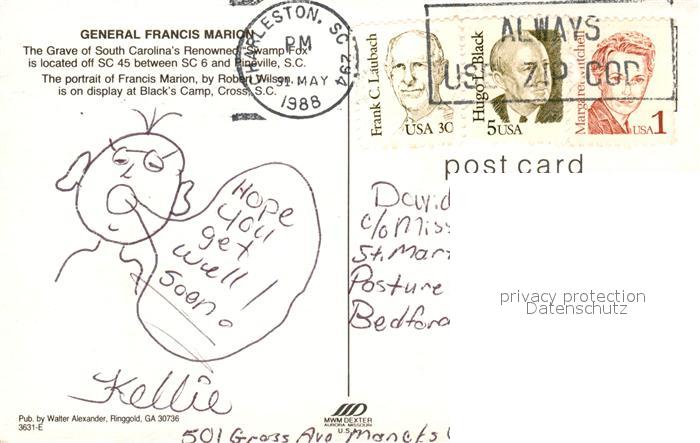 GENERAL FRANCIS MARION
The Grave of South Carolina's Renowned "Swamp Fox"
is located off SC 45 between SC 6 and Pineville, S.C.
The portrait of Francis Marion, by Robert Wilson,
is on display at Black's Camp, Cross, S.C.
CHARLESTON, SC 294
PM
31 MAY
1988
ALWAYS
USE ZIP COD
Frank C. Laubach
USA 30
Hugo L. Black
5USA
Margaret Mitchell
USA 1
post card
Hope
you
get
well!
soon.
Kellie
David
c/o Miss
St. Mar
Posture
Bedford
privacy protection
Datenschutz
Pub. by Walter Alexander, Ringgold, GA 30736
3631-E
MWM DEXTER
AURORA MISSOURI
U.S.A.
501 Grass Ave